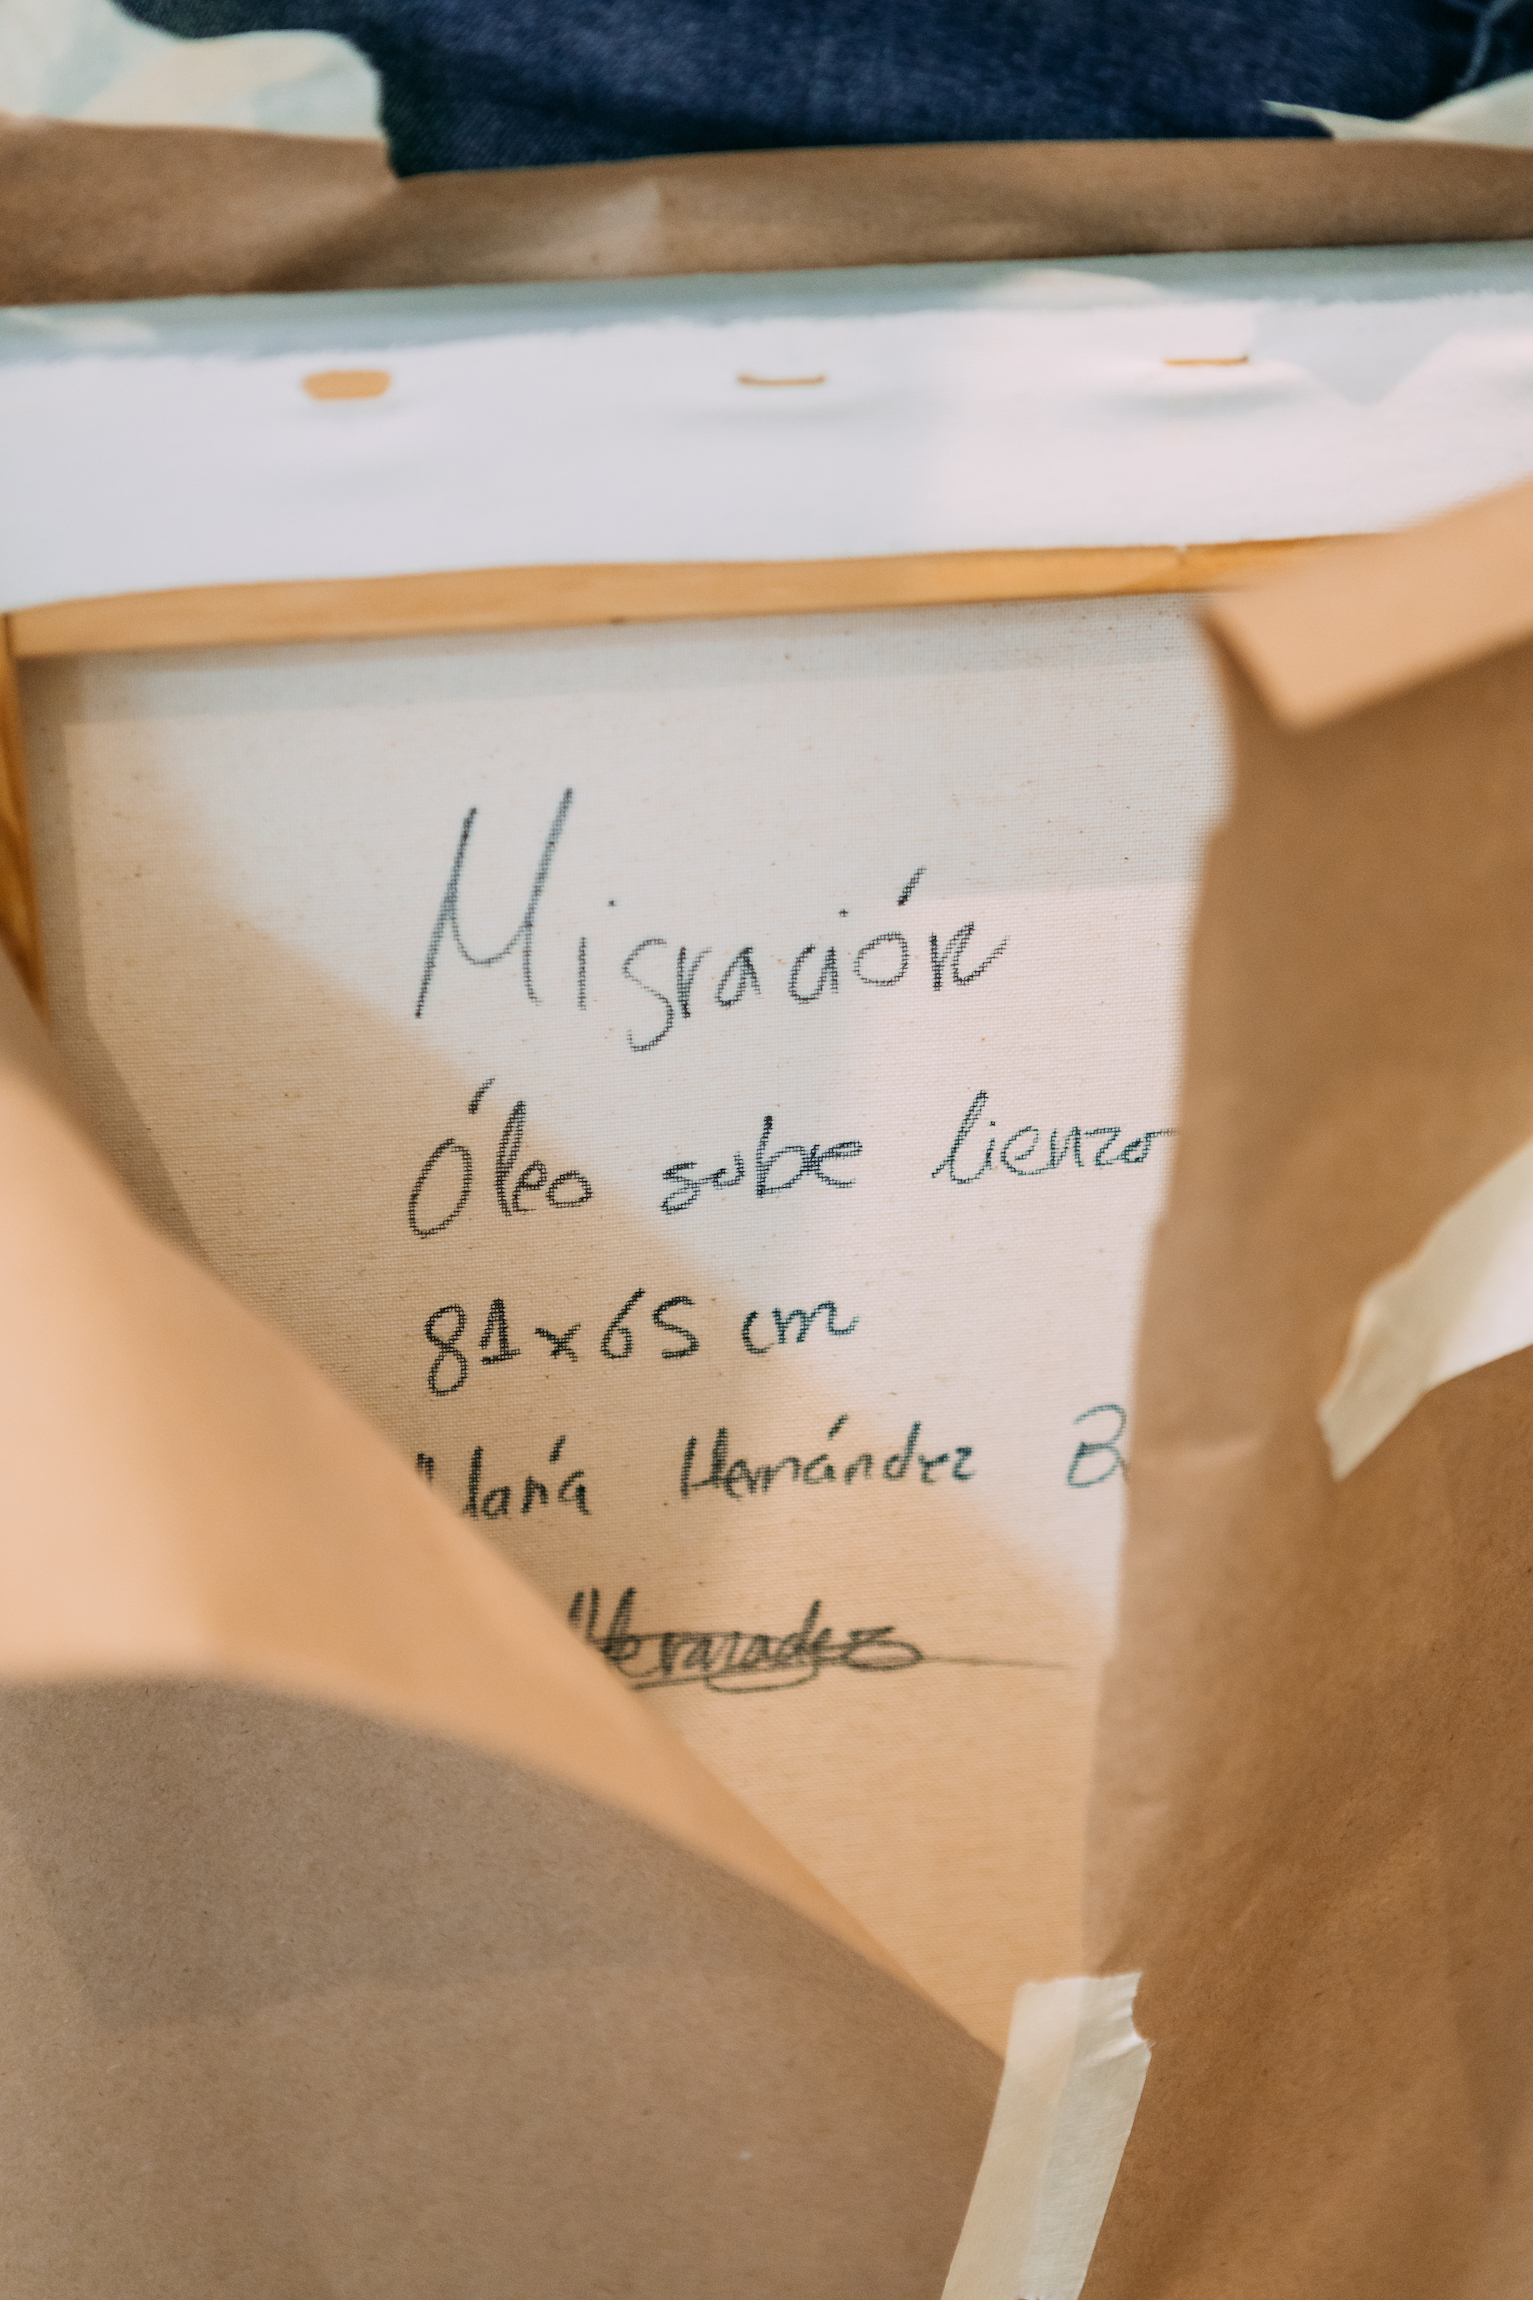 Migración
Óleo sobre lienzo
81x65 cm
María Hernández B
MHernández